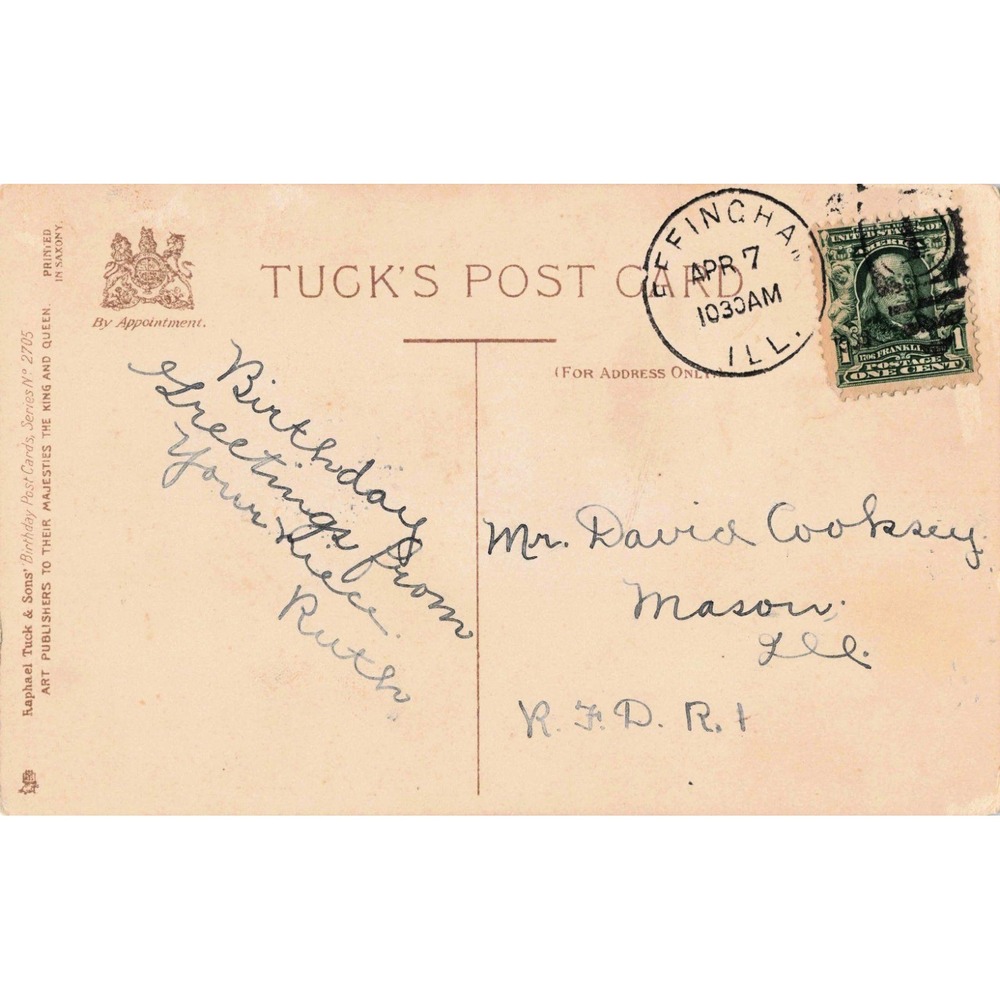 TUCK'S POST CARD
By Appointment.
(FOR ADDRESS ONLY.)
EFFINGHAM
APR 7
1030AM
ILL.
UNITED STATES OF
AMERICA
1706 FRANKLIN
POSTAGE
1 ONE CENT 1
Birthday
Greetings from
Your Niece.
Ruth
Mr. David Cooksey.
Mason,
Ill.
R. F. D. R. 1
Raphael Tuck & Sons' Birthday Post Cards, Series Nº 2705
ART PUBLISHERS TO THEIR MAJESTIES THE KING AND QUEEN.
PRINTED
IN SAXONY.